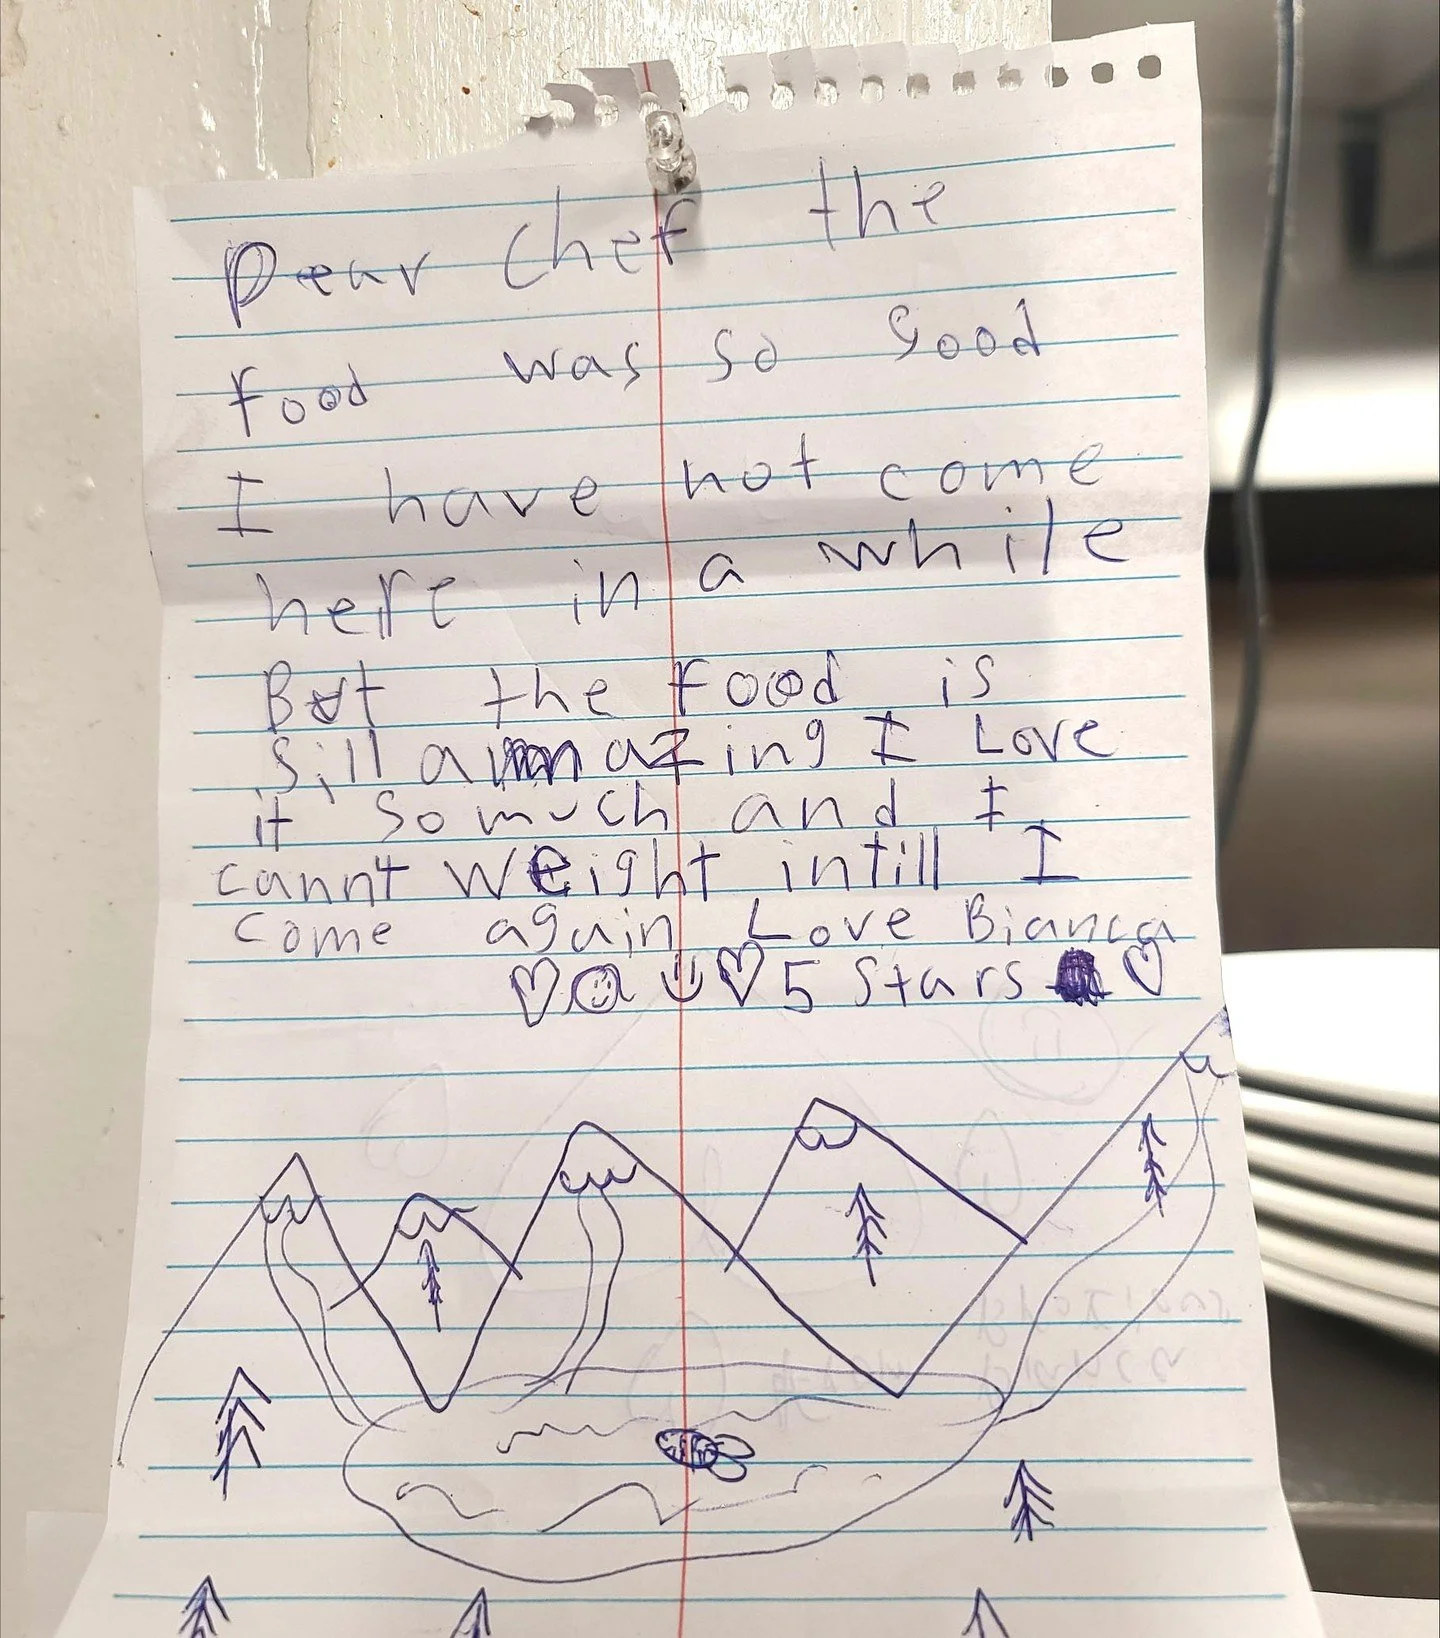 Dear Chef the
food was so good
I have not come
here in a while
But the food is
Sill amazing I Love
it so much and I
cannt weight intill I
come again Love Bianca
♡ ☺ ♡ 5 Stars ♡